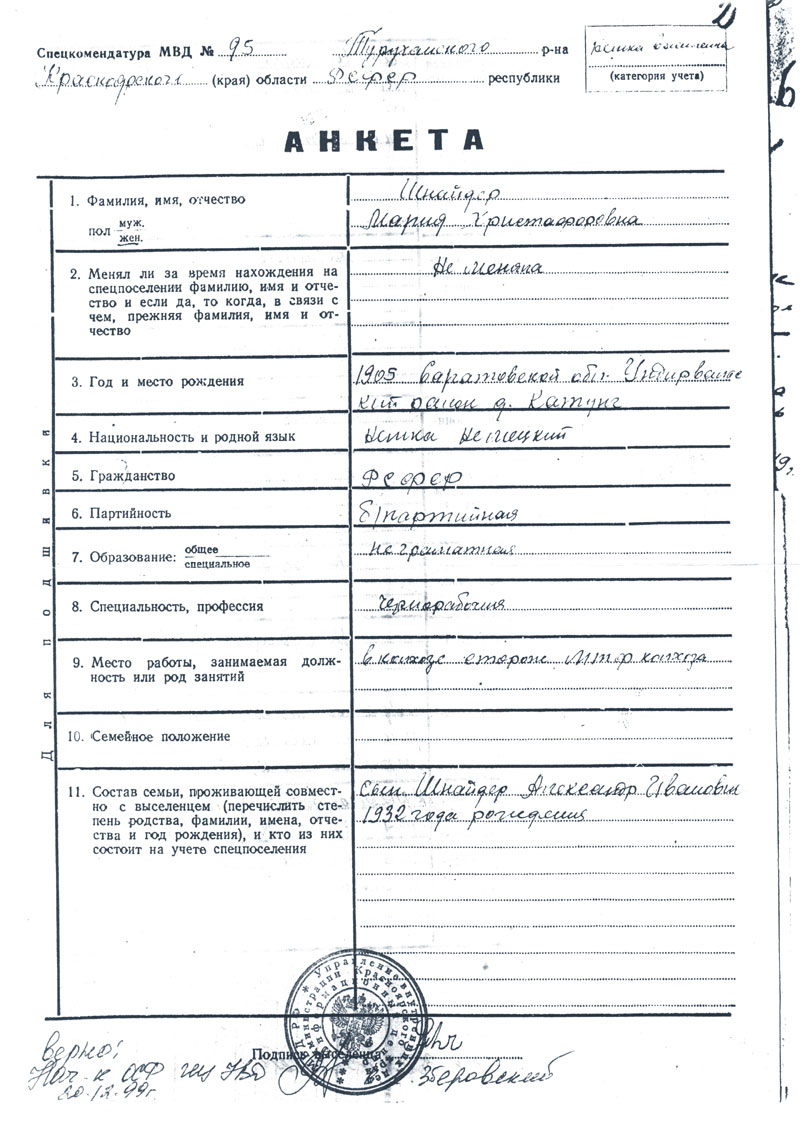 Спецкомендатура МВД № 95 Туруханского р-на
Красноярского (края) области РСФСР республики
немка выселенка
(категория учета)
АНКЕТА
1. Фамилия, имя, отчество
пол муж.
жен.
Шнайдер
Мария Христафоровна
2. Менял ли за время нахождения на
спецпоселении фамилию, имя и отче-
ство и если да, то когда, в связи с
чем, прежняя фамилия, имя и от-
чество
Не меняла
3. Год и место рождения
1905 Саратовской обл.
район д.
4. Национальность и родной язык
Немка Немецкий
5. Гражданство
РСФСР
6. Партийность
б/партийная
7. Образование: общее
специальное
Не граматная
8. Специальность, профессия
Чернорабочия
9. Место работы, занимаемая долж-
ность или род занятий
в колхозе сторож МТФ колхоза
10. Семейное положение
11. Состав семьи, проживающей совмест-
но с выселенцем (перечислить сте-
пень родства, фамилии, имена, отче-
ства и год рождения), и кто из них
состоит на учете спецпоселения
Сын Шнайдер Александр Иванович
1932 года рождения
Для подшивки
Подпись выселенца
верно:
Нач-к
20.12.99г.